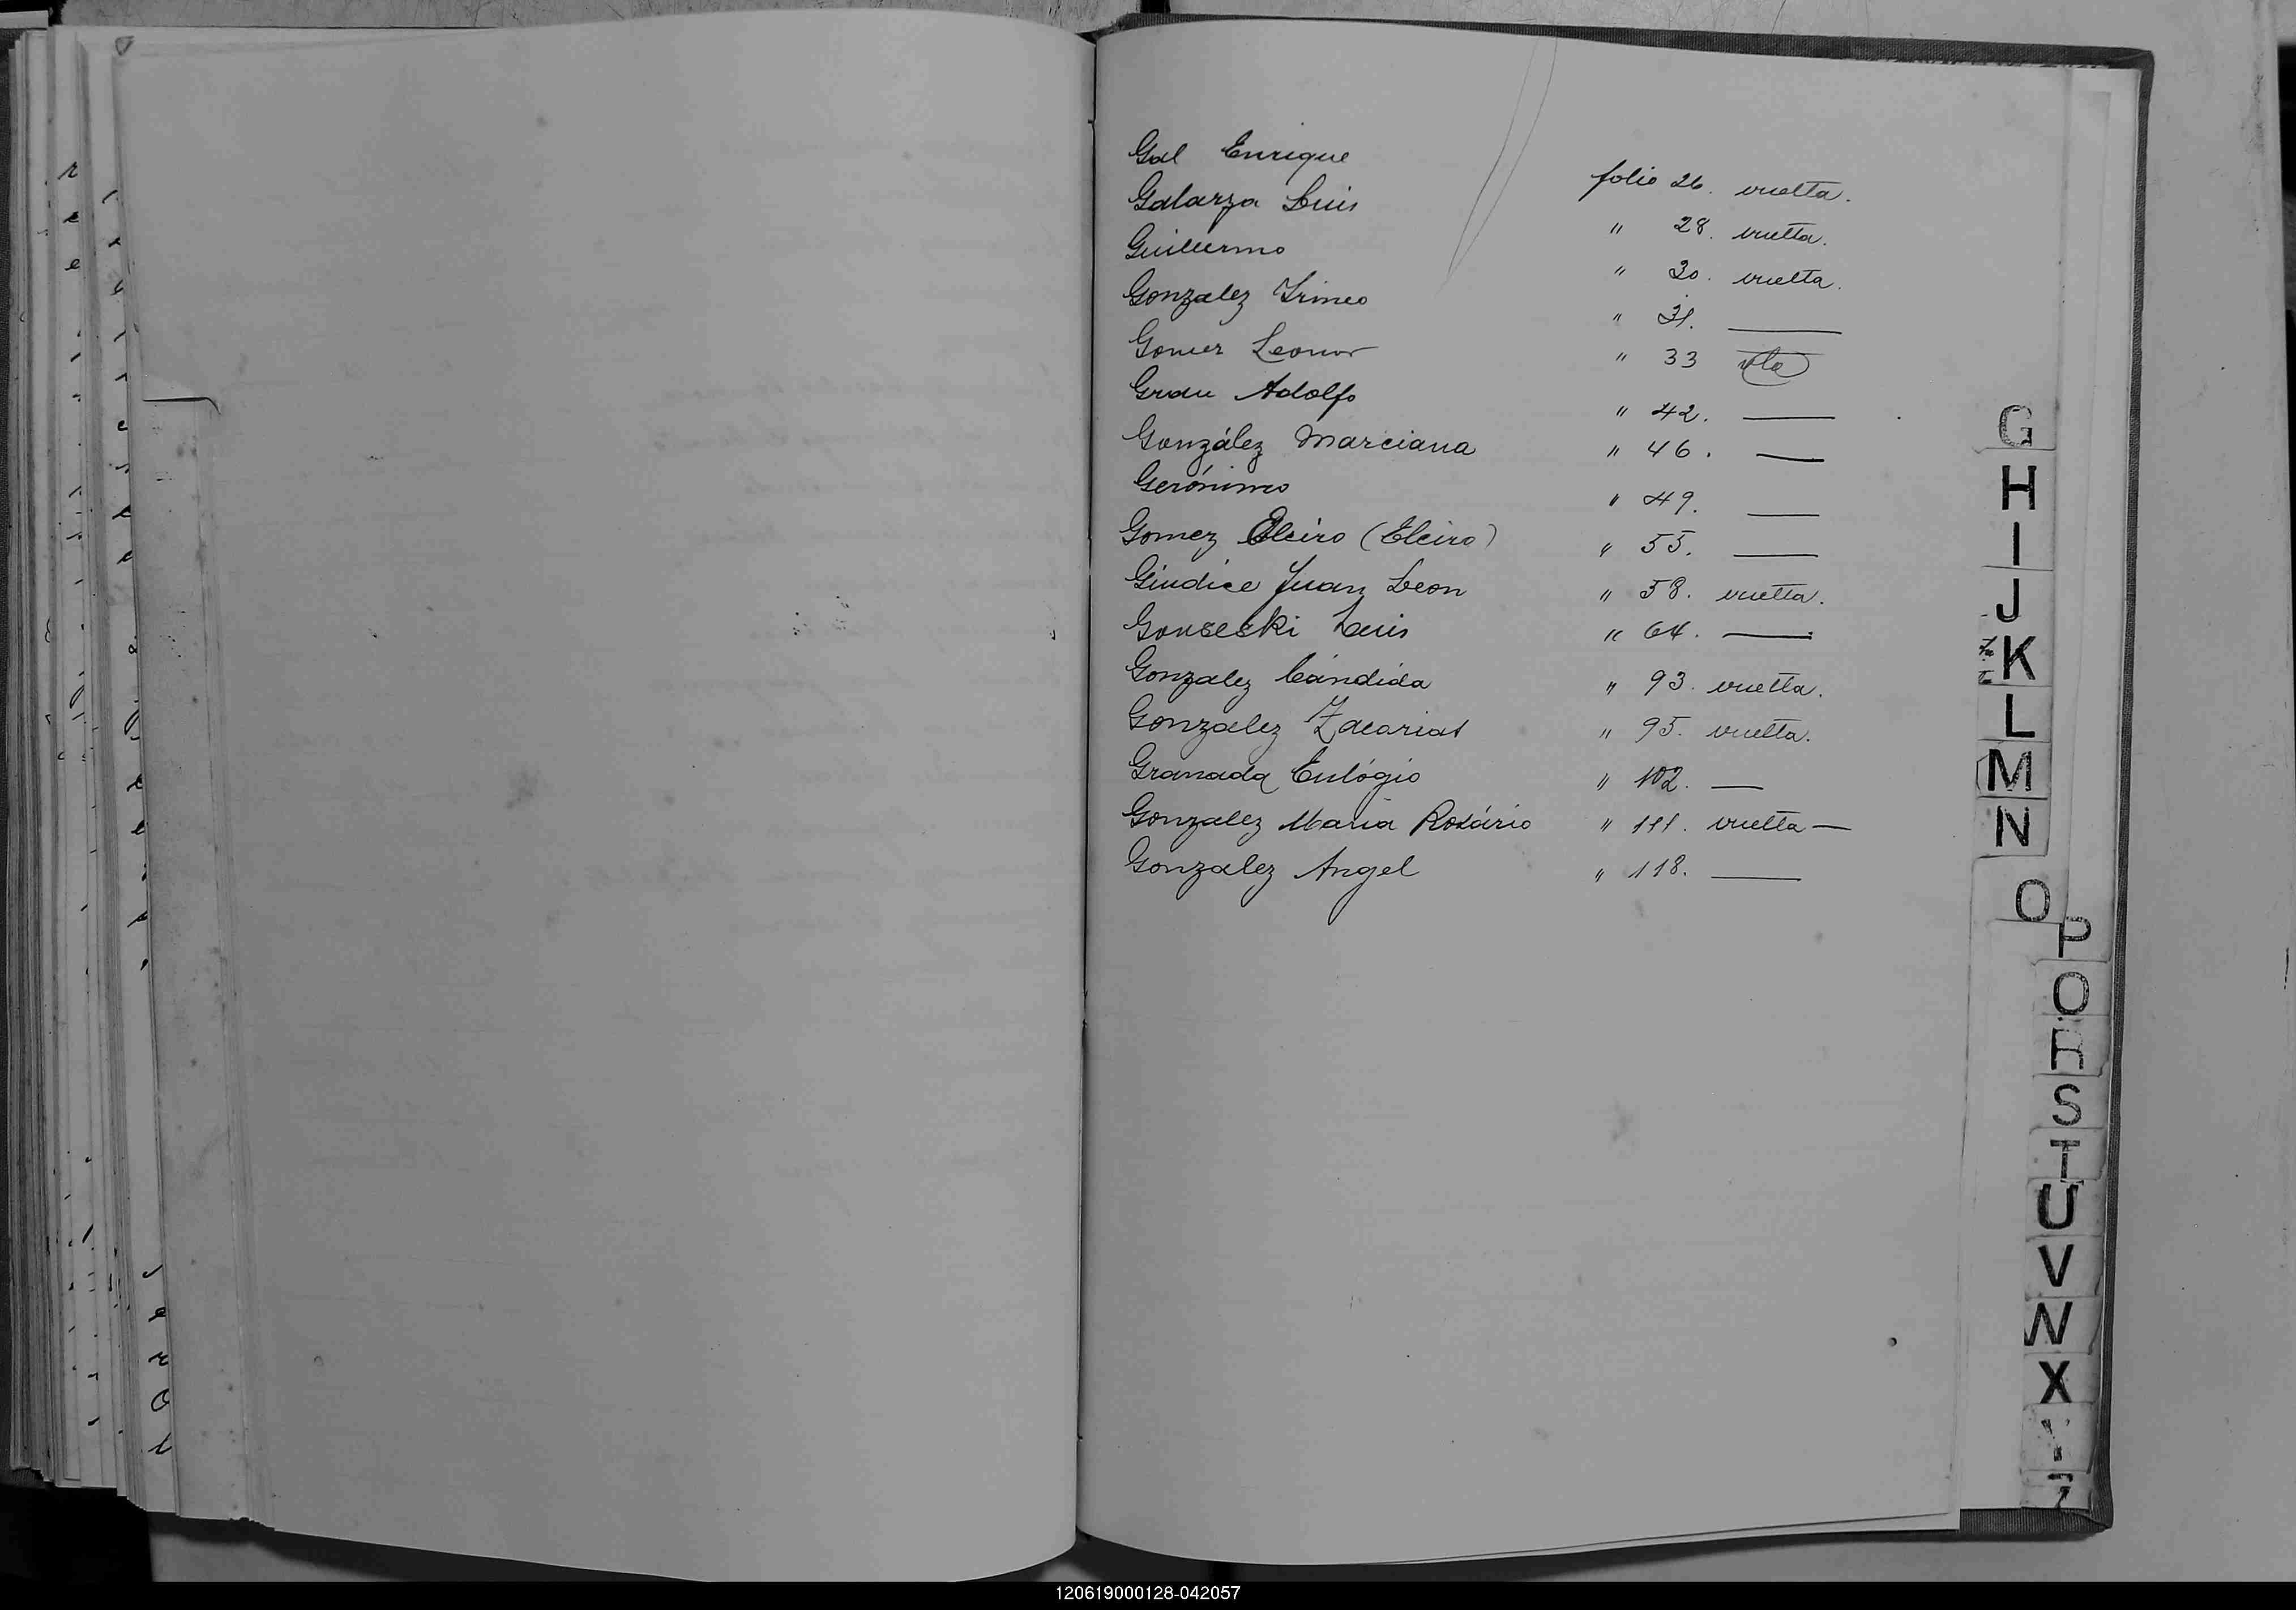 Gal Enrique folio 26. vuelta.
Galarza Luis " 28. vuelta.
Guillermo " 30. vuelta.
Gonzalez Irineo " 31. —
Gomez Leonor " 33 vta
Grau Adolfo " 42. —
González Marciana " 46. —
Gerónimo " 49. —
Gomez Elciro (Elciro) " 55. —
Giudice Juan Leon " 58. vuelta.
Gonseski Luis " 64. —
Gonzalez Cándida " 93. vuelta.
Gonzalez Zacarias " 95. vuelta.
Granada Eulógio " 102. —
Gonzalez Maria Rosário " 111. vuelta —
Gonzalez Angel " 118. —
G
H
I
J
K
L
M
N
O
P
Q
R
S
T
U
V
W
X
120619000128-042057